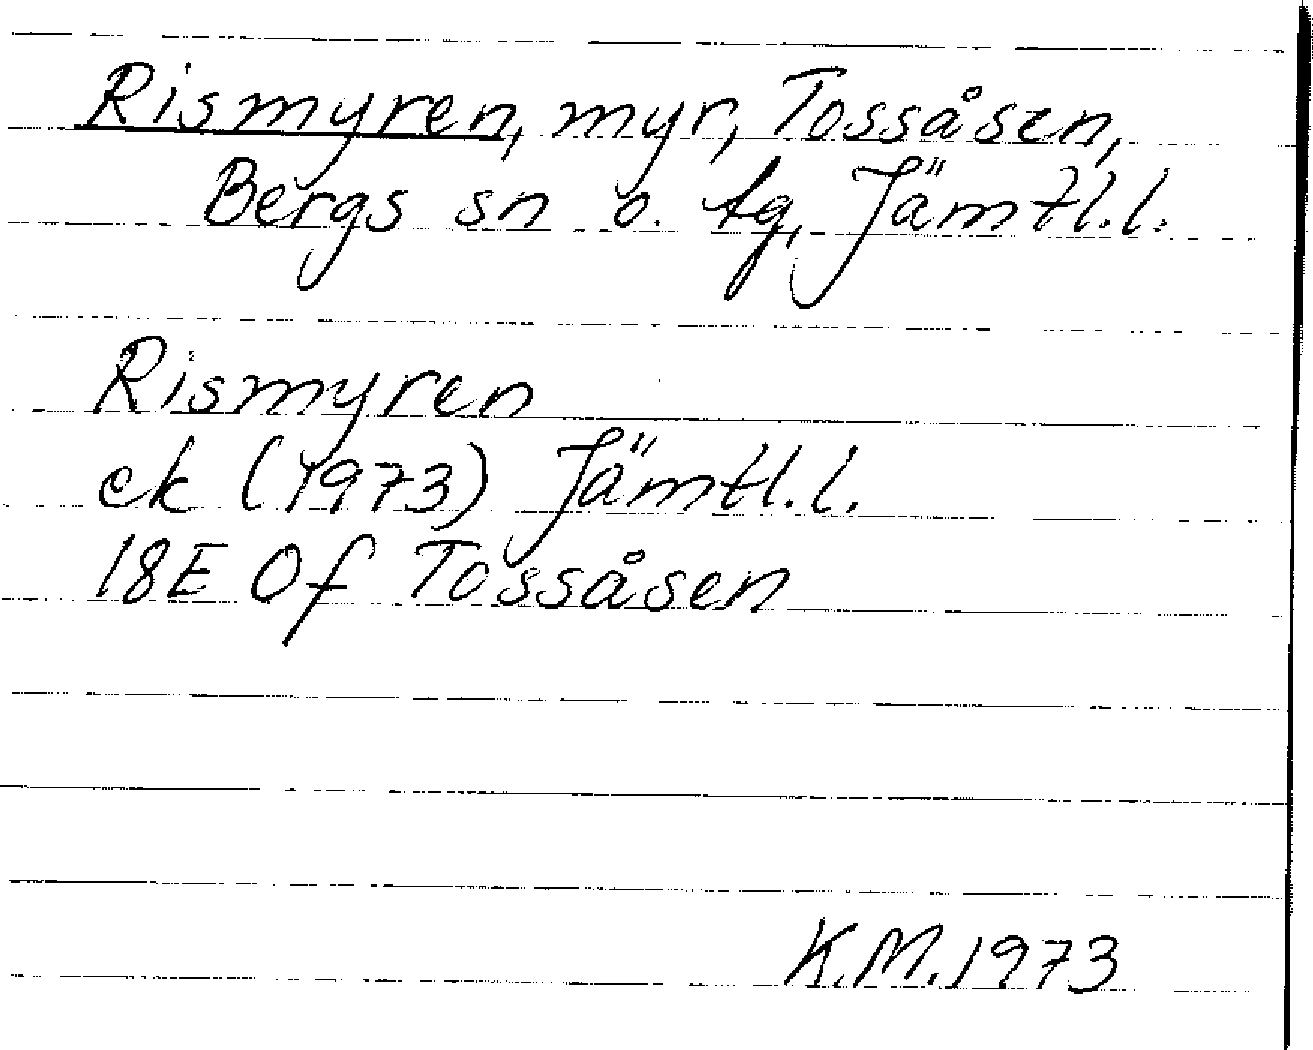 Rismyren, myr, Tossåsen,
Bergs sn o. tg, Jämtl.l.
Rismyren
ek (1973) Jämtl.l.
18E 0f Tossåsen
K.M.1973